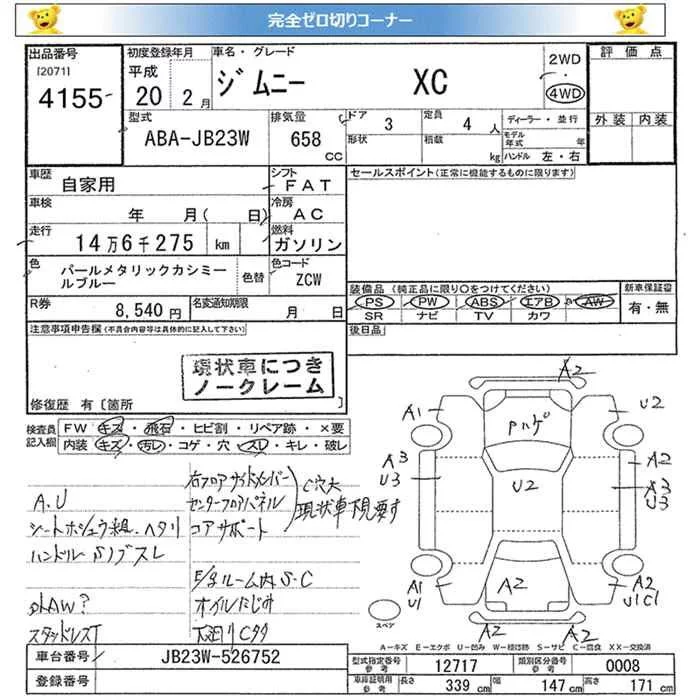 完全ゼロ切りコーナー
出品番号
[2071]
4155
初度登録年月
平成
20 年 2 月
車名・グレード
ジムニー XC
2WD
・
4WD
評価点
外装 内装
型式
ABA-JB23W
排気量
658 CC
ドア 3
形状
定員 4 人
積載 kg
ディーラー・並行
モデル年式 年
ハンドル 左・右
車歴
自家用
シフト
FAT
車検
年 月( 日)
冷房
AC
走行
14万6千275 km
燃料
ガソリン
色
パールメタリックカシミールブルー
色替
色コード
ZCW
R券
8,540 円
名変通知期限
月 日
セールスポイント(正常に機能するものに限ります)
装備品(純正品に限り○をつけてください)
PS PW ABS エアB AW
SR ナビ TV カワ
新車保証書
有・無
後日品
注意事項申告欄(不具合内容等は具体的に記入して下さい)
現状車につき
ノークレーム
修復歴 有〔箇所 〕
検査員記入欄
FW キズ・飛石・ヒビ割・リペア跡・×要
内装 キズ・汚レ・コゲ・穴・スレ・キレ・破レ
A.U
シートホシュウ組.ヘタリ
ハンドル(S)ブスレ
外AW?
スタッドレスT
右フロアサイドメンバー
センターフロアパネル
コアサポート
C穴大
現状車下見要す
E/gルーム内S.C
オイルにじみ
下廻りCタタ
A2
A1
Pハゲ
U2
A3
U3
U2
A2
A3
U3
A1
U1
A2
A2
U1C1
A2
A2
スペア
A-キズ E-エクボ U-凹み W-補修跡 S-サビ C-腐食 XX-交換済
車台番号
JB23W-526752
登録番号
型式指定番号
参考
12717
類別区分番号
参考
0008
車庫証明用
参考
長さ 339 cm
幅 147 cm
高さ 171 cm